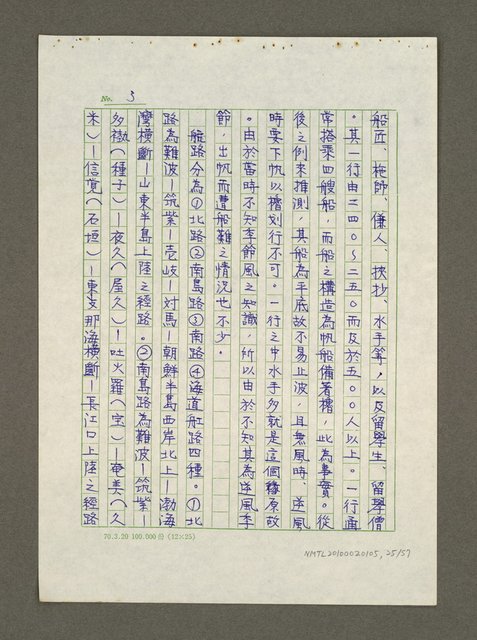 No. 3
船匠、柂師、傔人、挾抄、水手等，以及留學生、留學僧
。其一行由二四０～二五０而及於五００人以上。一行通
常搭乘四艘船，而船之構造為帆船備著櫓，此為事實。從
後之例來推測，其船為平底故不易止波，且無風時、逆風
時要下帆以櫓划行不可。一行之中水手多就是這個緣故
。由於當時不知季節風之知識，所以由於不知其為逆風季
節，出帆而遭船難之情況也不少。
航路分為①北路②南島路③南路④海道舡路四種。①北
路為難波－筑紫－壱岐－対馬－朝鮮半島西岸北上－渤海
灣橫斷－山東半島上陸之經路。②南島路為難波－筑紫－
多褹（種子）－夜久（屋久）－吐火羅（宝）－奄美（久
米）－信覚（石垣）－東支那海橫斷－長江口上陸之經路
70.3.20 100.000份 (12×25)
NMTL20100020105, 25/57